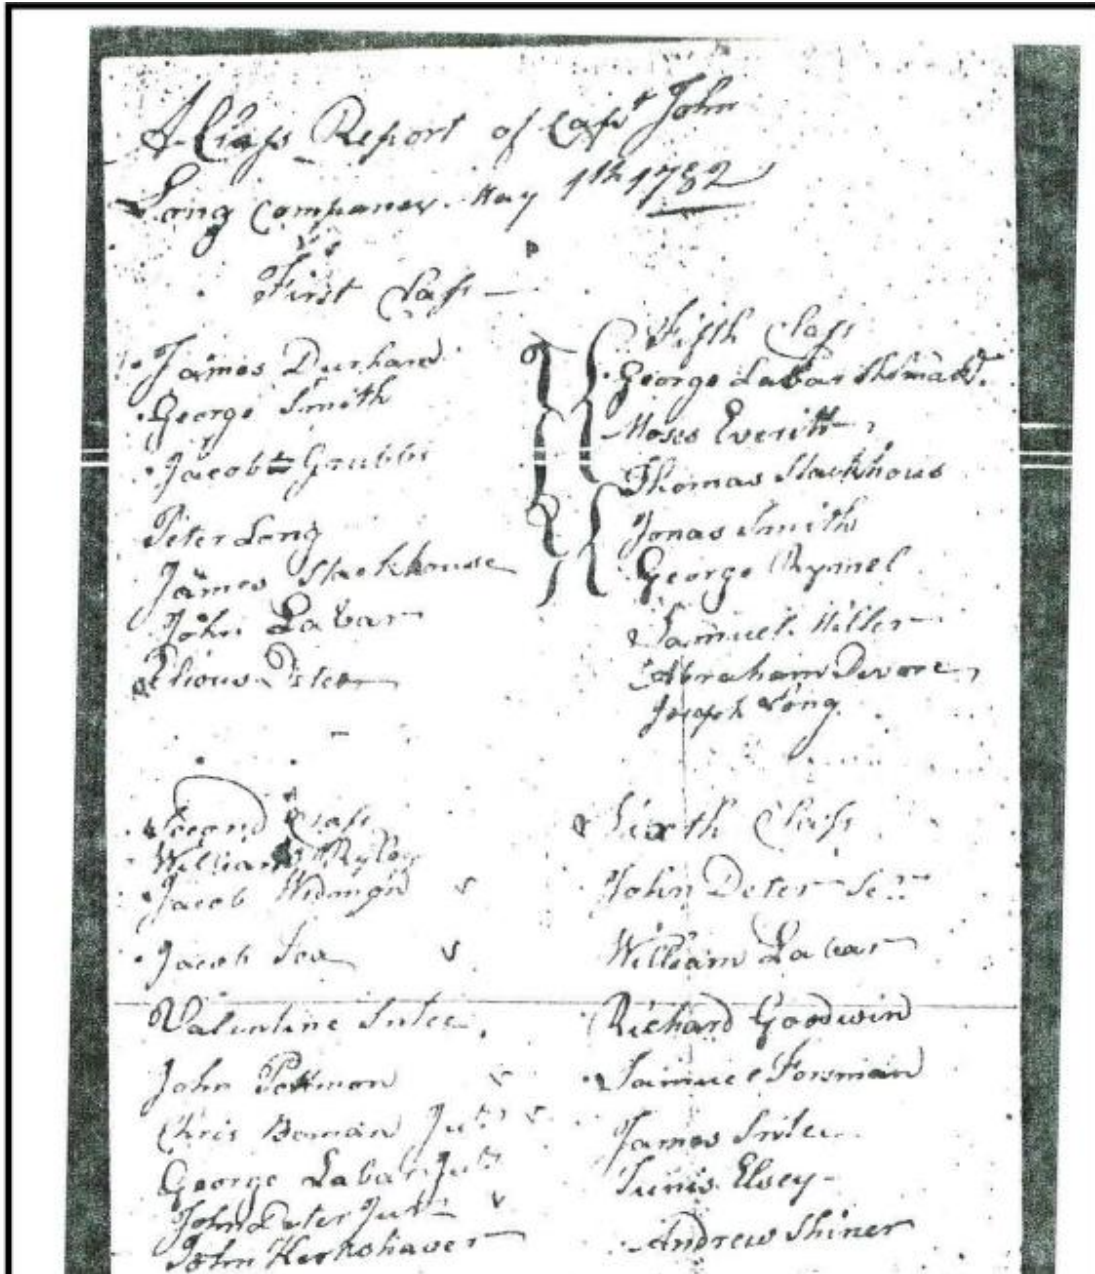 A Class Report of Capt John
Long Companey May 1th 1782
First Class
James Durham
George Smith
Jacob Grubbs
Peter Long
James Stackhouse
John Labar
Second Class
William Ryley
Jacob Widmon
Jacob
Valentine Snter
John Pottmon
Chris Boman Jur
George Labar Jur
John Deter Jur
John Kerkshaver
Fifth Class
George Labar
Moses Everitt
Thomas Stackhous
Jonas Smith
George Rymel
Samuel Miller
Abraham Devore
Joseph Long
Sixth Class
John Deter Senr
William Labar
Richard Goodwin
Samuel Forsman
James
Tunis Elsey
Andrew Shiner